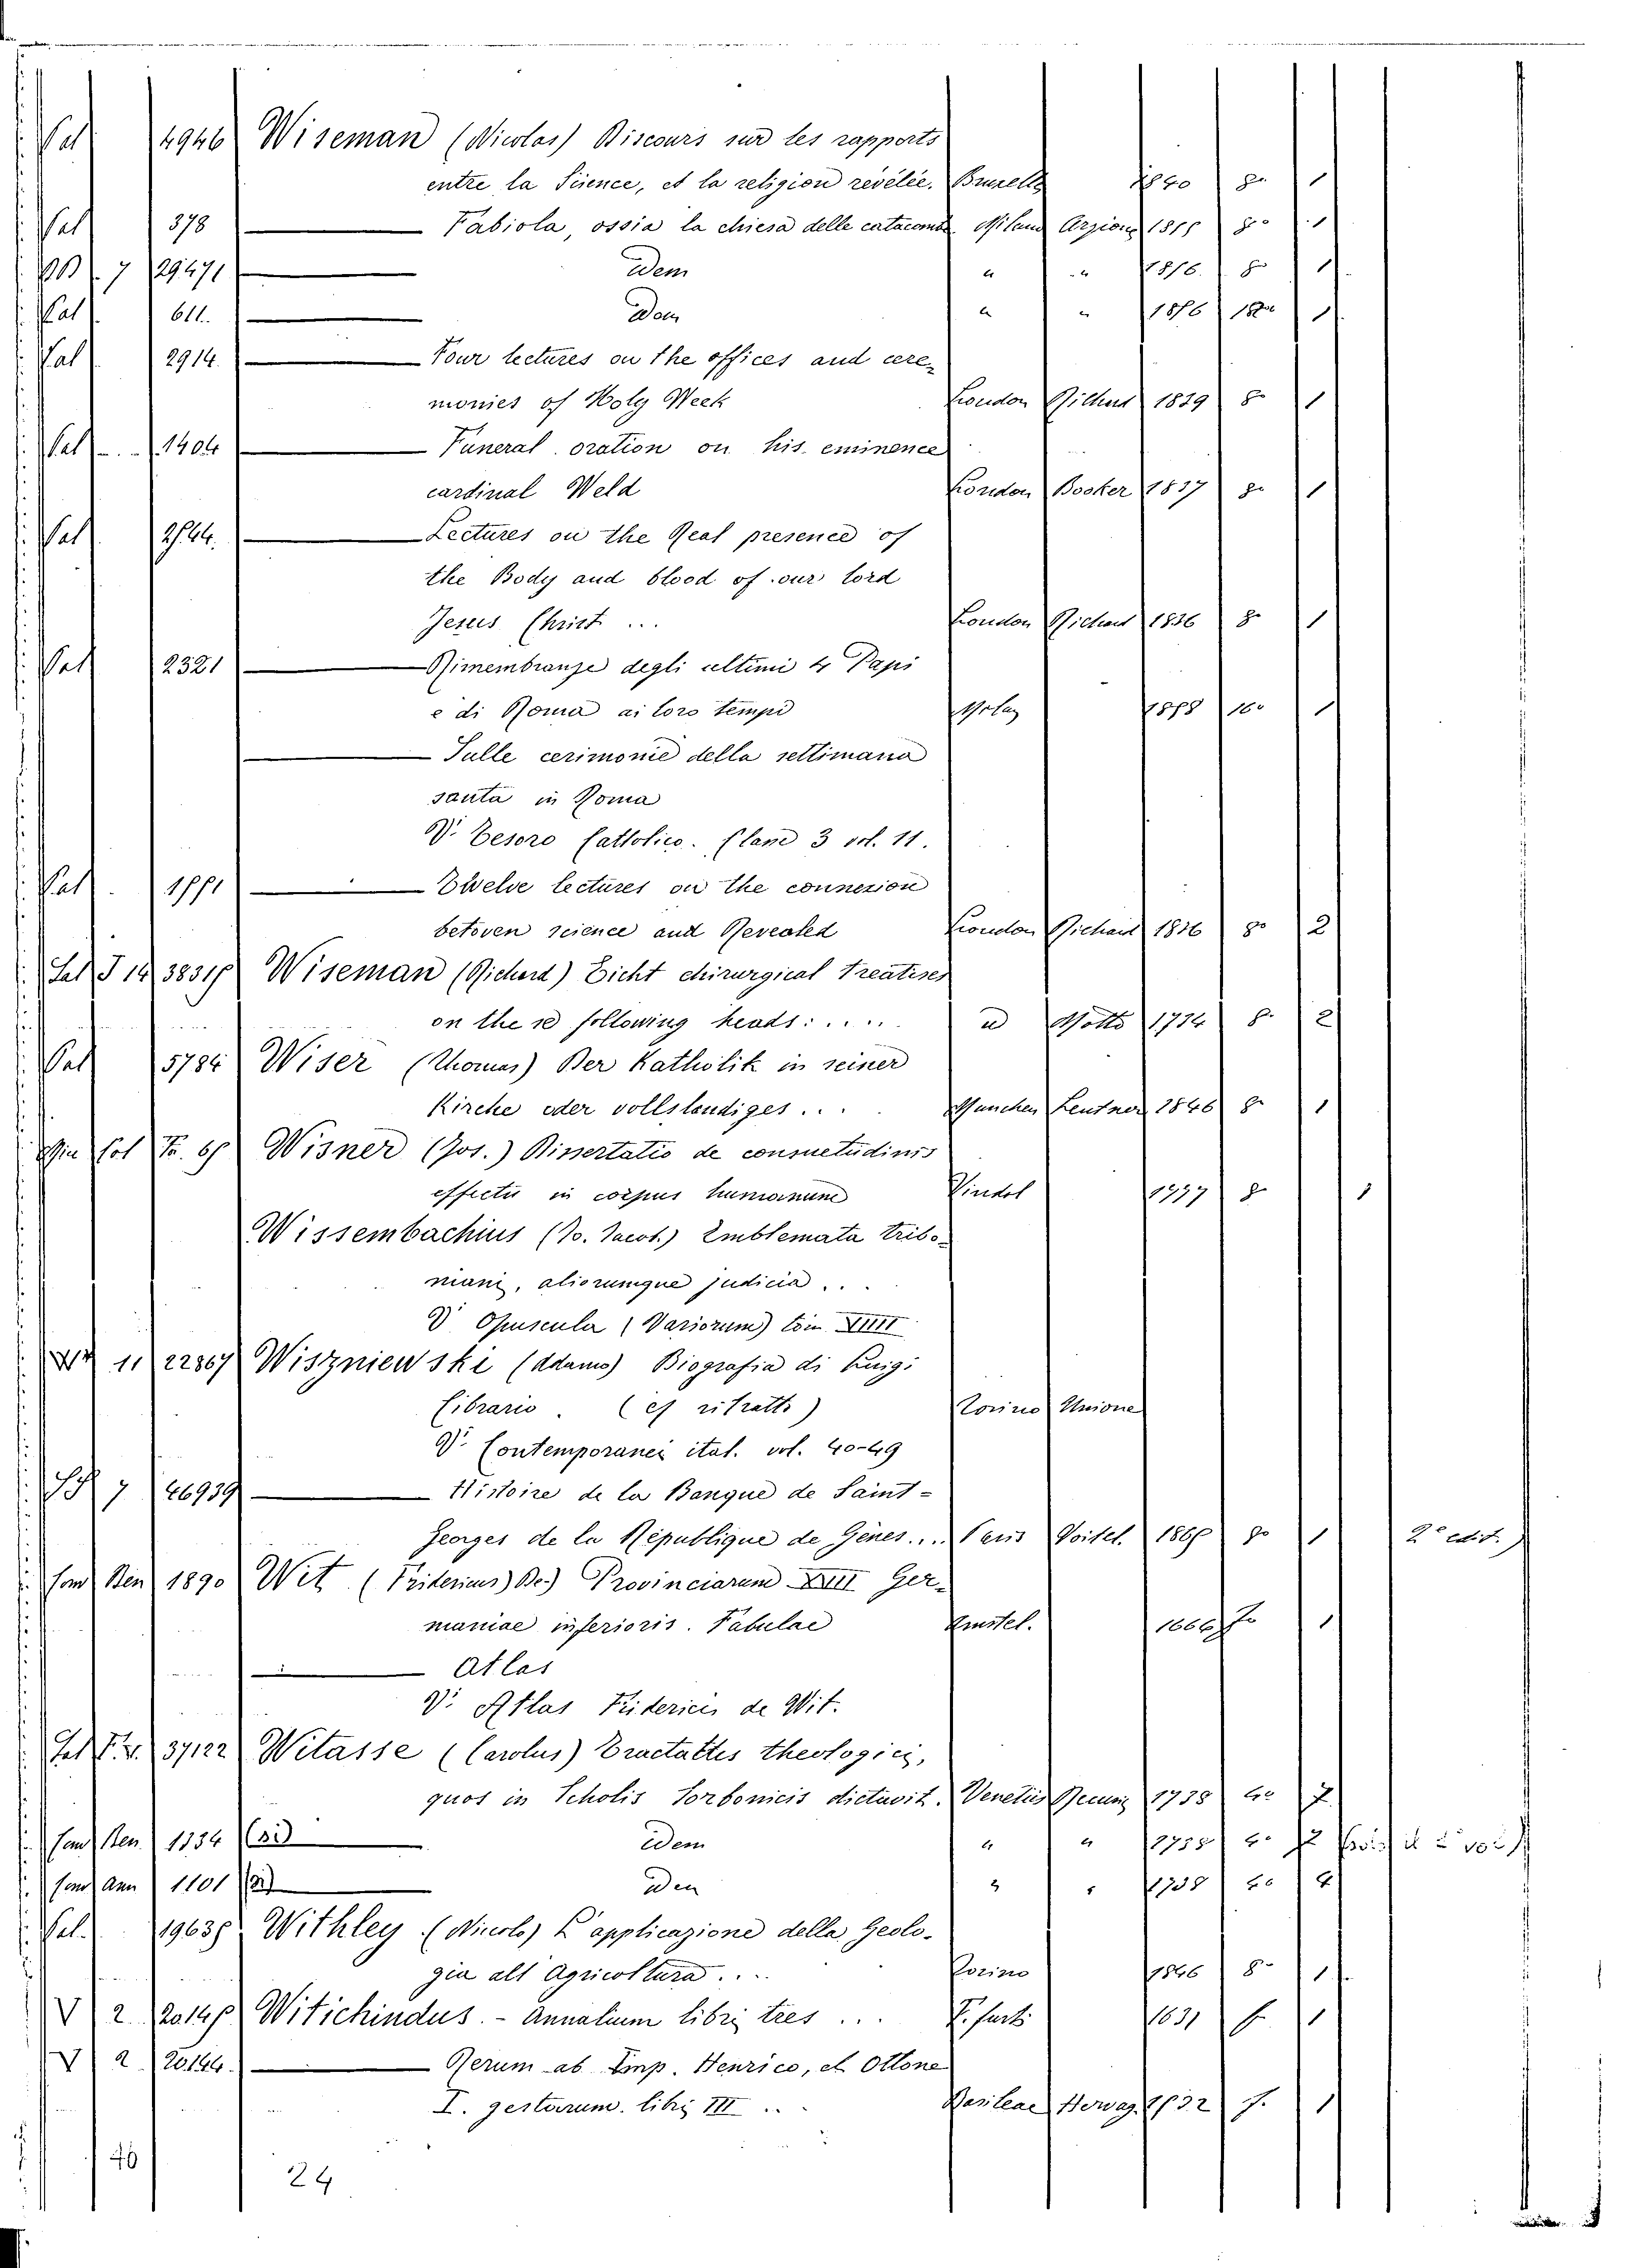 Val 4946 Wiseman (Nicolas) Discours sur les rapports
entre la Science, et la religion revélée. Bruxelles 1840 8° 1
Val 378 Fabiola, ossia la chiesa delle catacombe Milano Arzione 1855 8° 1
7 29471 Idem " " 1856. 8° 1
Val 611. Idem " " 1856 18° 1
Val 2914. Four lectures on the offices and cere-
monies of Holy Week London Richard 1839 8° 1
Val 1404 Funeral oration on his eminence
cardinal Weld London Booker 1837 8° 1
Val Lectures on the Real presence of
the Body and blood of our lord
Jesus Christ ... London Richard 1836 8° 1
Val 2321 Rimembranze degli ultimi 4 Papi
e di Roma ai loro tempi 1858 16° 1
Sulle cerimonie della settimana
santa in Roma
V. Tesoro Cattolico. Clane 3 vol. 11.
Val 1551 Twelve lectures on the connexion
betwen science and Revealed London Richard 1836 8° 2
Sal J 14 38315 Wiseman (Richard) Eicht chirurgical treatises
on the se following heads: ..... 1734 8° 2
Val 5784 Wiser (Thomas) Der Katholik in seiner
Kirche oder vollstandiges ... Munchen Lentner 1846 8° 1
Wisner (Jos.) Dissertatio de consuetudinis
effectu in corpus humanum Vindob 1777 8° 1
Wissembachius (Jo. Jacob.) Emblemata tribo-
niani, aliorumque judicia ...
V. Opuscula (Variorum) tom XIIII
11 22867 Wiszniewski (Adamo) Biografia di Luigi
Cibrario. (cf ritratto) Torino Unione
V. Contemporanei ital. vol. 40-49
7 46939 Histoire de la Banque de Saint-
Georges de la République de Gênes... Paris Voitel. 1865 8° 1 2e edit.
fond Ren 1890 Wit (Fridericus De) Provinciarum XVII Ger-
maniae inferioris. Tabulae Amstel. 1666 f° 1
Atlas
V. Atlas Friderici de Wit.
Sal 37122 Witasse (Carolus) Tractatus theologici,
quos in Scholis Sorbonicis dictavit. Venetiis 1738 4° 7
fond Ren 1334 Idem " " 1738 4°
fond Ann 1101 Idem " " 1738 4°
Val. 19635 Withley (Nicolo) L'applicazione della Geolo-
gia all Agricoltura .... Torino 1846 8° 1
V 2 20145 Witichindus. - Annalium libri tres ... 1
V 2 20144. Rerum ab Imp. Henrico, et Ottone
I. gestarum. libri III .. Basileae Herwag. 1532 f. 1
46
24